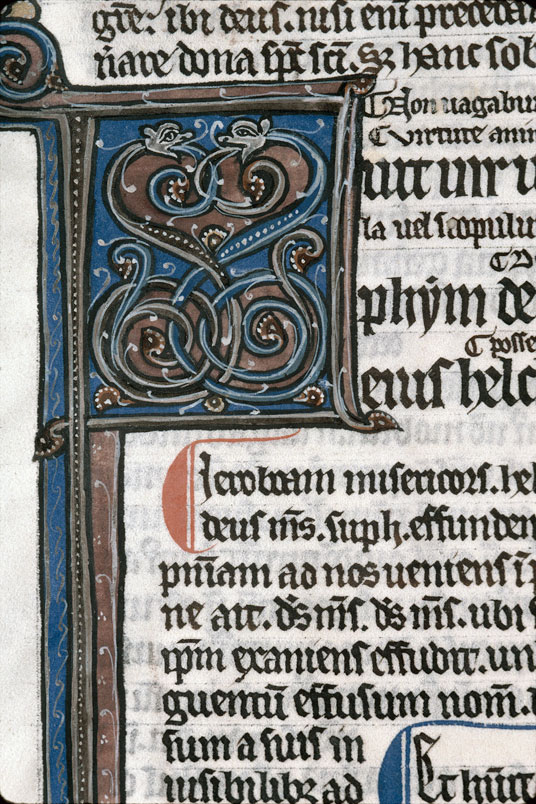 gn̄e. ibi deus. nisi eni͂ preceda
n̄are dona sp̄s sc̄i. Hanc sob
Non uagabu
Virtute ani
uit uir u
la uel scopulu
phẏm de
posse
eius helc
Jeroboam misericors. hel
deus m̄s. suph. effunden
ad nos ueniens i͂
ne ait. d̄s m̄s. d̄s m̄s. ubi
ip̄m exaniens effudit. un
guentū effusum nom̄.
sum a suis in
uisibilibꝫ ad
Et